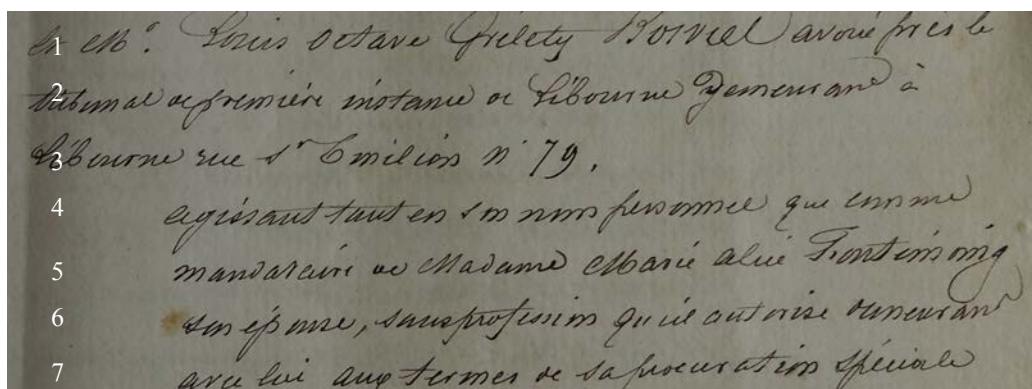 1 En Mr. Louis Octave Grélety Bosviel avoué près le
2 tribunal de première instance de Libourne Demeurant à
3 Libourne rue St Emilion n° 79,
4 agissant tant en son nom personnel que comme
5 mandataire de Madame Marie alice Fontémoing
6 son épouse, sans profession qu'il autorise demeurant
7 avec lui aux termes de sa procuration spéciale